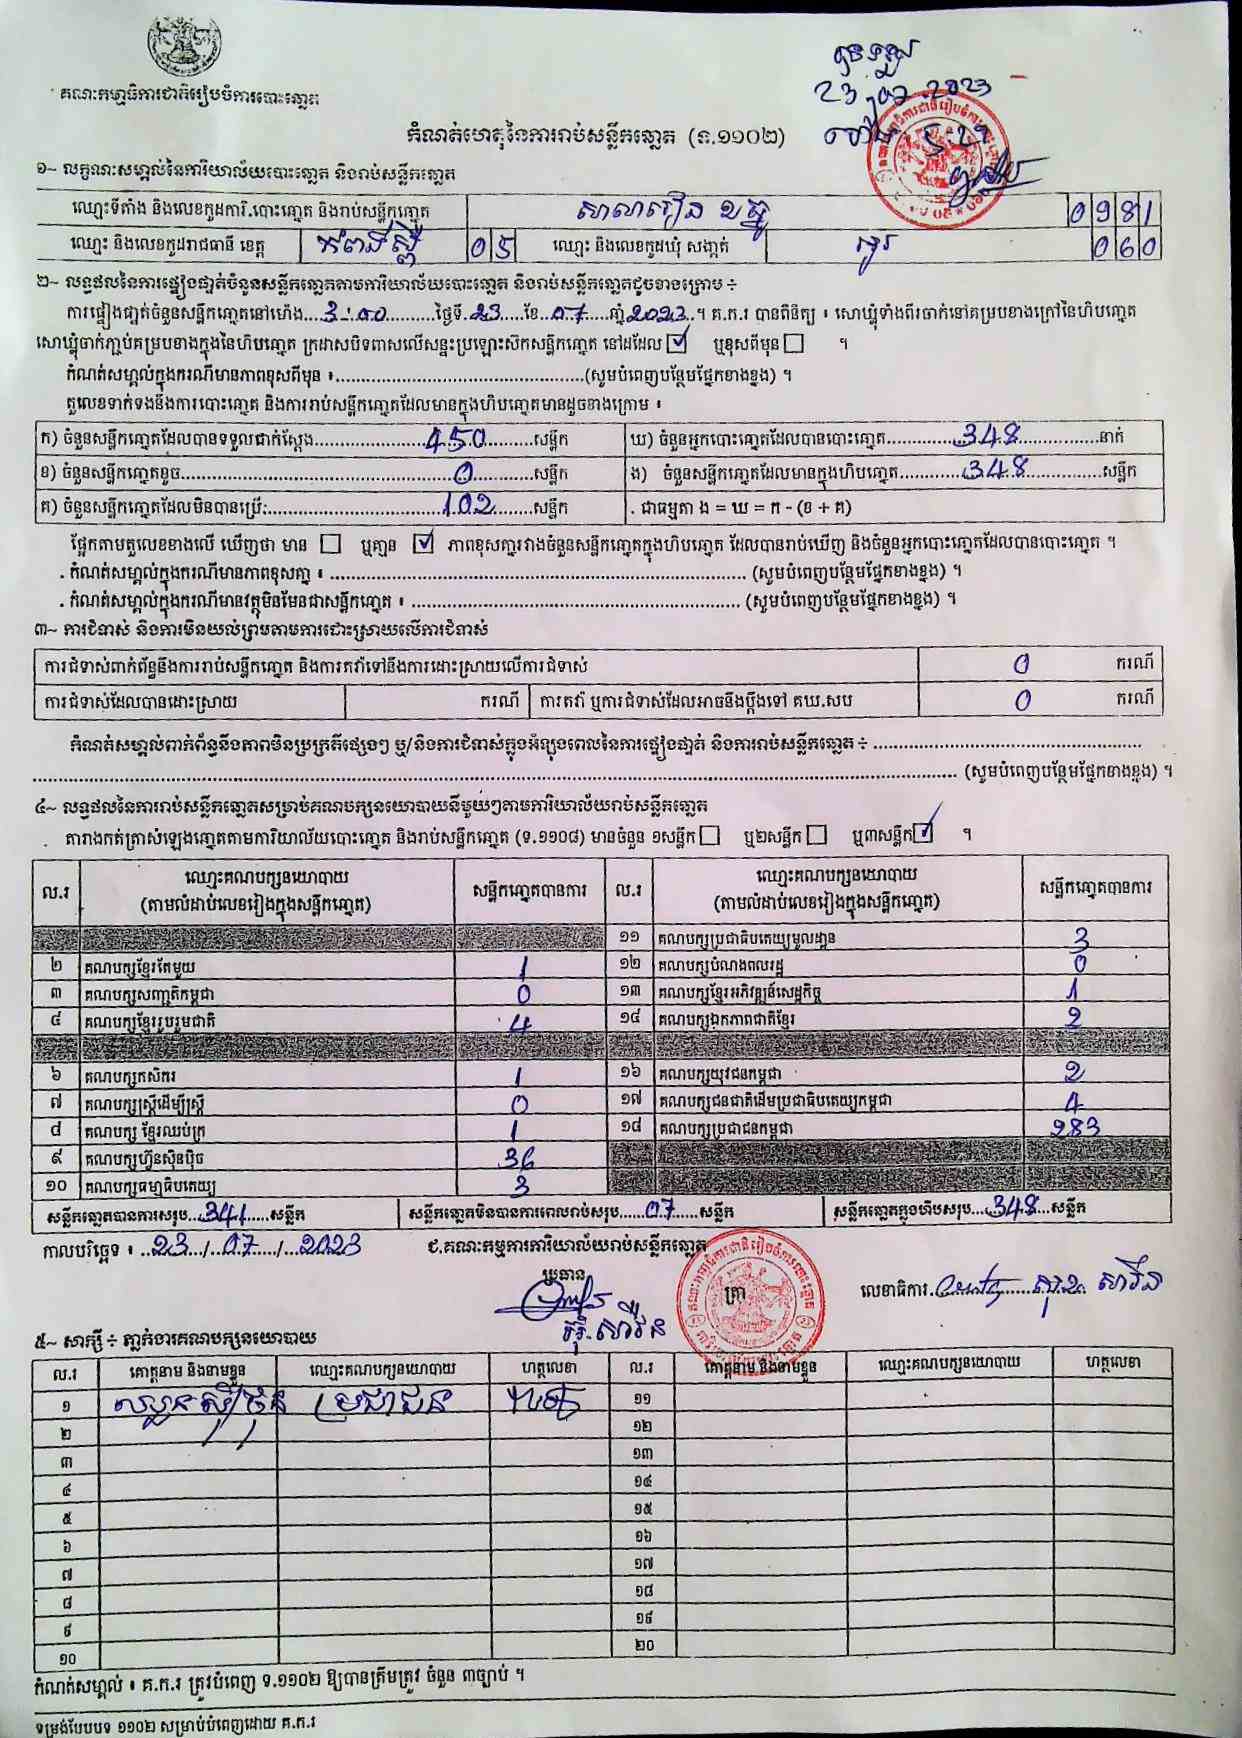 គណៈកម្មាធិការជាតិរៀបចំការបោះឆ្នោត
23 2023
កំណត់ហេតុនៃការរាប់សន្លឹកឆ្នោត (ទ.១១០២)
១~ លក្ខណៈសម្គាល់នៃការិយាល័យបោះឆ្នោត និងរាប់សន្លឹកឆ្នោត
ឈ្មោះទីតាំង និងលេខកូដការិ.បោះឆ្នោត និងរាប់សន្លឹកឆ្នោត សាលារៀន 0981
ឈ្មោះ និងលេខកូដរាជធានី ខេត្ត កំពង់ស្ពឺ 05 ឈ្មោះ និងលេខកូដឃុំ សង្កាត់ 060
២~ លទ្ធផលនៃការផ្ទៀងផ្ទាត់ចំនួនសន្លឹកឆ្នោតតាមការិយាល័យបោះឆ្នោត និងរាប់សន្លឹកឆ្នោតដូចខាងក្រោម ÷
ការផ្ទៀងផ្ទាត់ចំនួនសន្លឹកឆ្នោតនៅម៉ោង...3:00...ថ្ងៃទី.23...ខែ.07...ឆ្នាំ2023..។ គ.ក.រ បានពិនិត្យ ៖ សោឃ្លុំទាំងពីរចាក់នៅគម្របខាងក្រៅនៃហិបឆ្នោត
សោឃ្លុំចាក់ភ្ជាប់គម្របខាងក្នុងនៃហិបឆ្នោត ក្រដាសបិទពាសលើសន្ទះប្រឡោះស៊កសន្លឹកឆ្នោត នៅដដែល ☑ ឬខុសពីមុន ☐ ។
កំណត់សម្គាល់ក្នុងករណីមានភាពខុសពីមុន ៖......(សូមបំពេញបន្ថែមផ្នែកខាងខ្នង) ។
តួលេខទាក់ទងនឹងការបោះឆ្នោត និងការរាប់សន្លឹកឆ្នោតដែលមានក្នុងហិបឆ្នោតមានដូចខាងក្រោម ៖
ក) ចំនួនសន្លឹកឆ្នោតដែលបានទទួលជាក់ស្តែង...450...សន្លឹក ឃ) ចំនួនអ្នកបោះឆ្នោតដែលបានបោះឆ្នោត...348...នាក់
ខ) ចំនួនសន្លឹកឆ្នោតខូច...0...សន្លឹក ង) ចំនួនសន្លឹកឆ្នោតដែលមានក្នុងហិបឆ្នោត...348...សន្លឹក
គ) ចំនួនសន្លឹកឆ្នោតដែលមិនបានប្រើ:...102...សន្លឹក . ជាធម្មតា ង = ឃ = ក - (ខ + គ)
ផ្អែកតាមតួលេខខាងលើ ឃើញថា មាន ☐ ឬគ្មាន ☑ ភាពខុសគ្នារវាងចំនួនសន្លឹកឆ្នោតក្នុងហិបឆ្នោត ដែលបានរាប់ឃើញ និងចំនួនអ្នកបោះឆ្នោតដែលបានបោះឆ្នោត ។
. កំណត់សម្គាល់ក្នុងករណីមានភាពខុសគ្នា ៖ ...... (សូមបំពេញបន្ថែមផ្នែកខាងខ្នង) ។
. កំណត់សម្គាល់ក្នុងករណីមានវត្ថុមិនមែនជាសន្លឹកឆ្នោត ៖ ...... (សូមបំពេញបន្ថែមផ្នែកខាងខ្នង) ។
៣~ ការជំទាស់ និងការមិនយល់ព្រមតាមការដោះស្រាយលើការជំទាស់
ការជំទាស់ពាក់ព័ន្ធនឹងការរាប់សន្លឹកឆ្នោត និងការតវ៉ាទៅនឹងការដោះស្រាយលើការជំទាស់ 0 ករណី
ការជំទាស់ដែលបានដោះស្រាយ ករណី ការតវ៉ា ឬការជំទាស់ដែលអាចនឹងប្តឹងទៅ គឃ.សប 0 ករណី
កំណត់សម្គាល់ពាក់ព័ន្ធនឹងភាពមិនប្រក្រតីផ្សេងៗ ឬ/និងការជំទាស់ក្នុងអំឡុងពេលនៃការផ្ទៀងផ្ទាត់ និងការរាប់សន្លឹកឆ្នោត ÷ ......
...... (សូមបំពេញបន្ថែមផ្នែកខាងខ្នង) ។
៤~ លទ្ធផលនៃការរាប់សន្លឹកឆ្នោតសម្រាប់គណបក្សនយោបាយនីមួយៗតាមការិយាល័យរាប់សន្លឹកឆ្នោត
តារាងកត់ត្រាសំឡេងឆ្នោតតាមការិយាល័យបោះឆ្នោត និងរាប់សន្លឹកឆ្នោត (ទ.១១០៨) មានចំនួន ១សន្លឹក ☐ ឬ២សន្លឹក ☐ ឬ៣សន្លឹក ☑ ។
ល.រ ឈ្មោះគណបក្សនយោបាយ (តាមលំដាប់លេខរៀងក្នុងសន្លឹកឆ្នោត) សន្លឹកឆ្នោតបានការ ល.រ ឈ្មោះគណបក្សនយោបាយ (តាមលំដាប់លេខរៀងក្នុងសន្លឹកឆ្នោត) សន្លឹកឆ្នោតបានការ
១១ គណបក្សប្រជាធិបតេយ្យមូលដ្ឋាន 3
២ គណបក្សខ្មែរតែមួយ 1 ១២ គណបក្សបំណងពលរដ្ឋ 0
៣ គណបក្សសញ្ជាតិកម្ពុជា 0 ១៣ គណបក្សខ្មែរអភិវឌ្ឍន៍សេដ្ឋកិច្ច 1
៤ គណបក្សខ្មែររួបរួមជាតិ 4 ១៤ គណបក្សឯកភាពជាតិខ្មែរ 2
៦ គណបក្សកសិករ 1 ១៦ គណបក្សយុវជនកម្ពុជា 2
៧ គណបក្សស្រ្តីដើម្បីស្រ្តី 0 ១៧ គណបក្សជនជាតិដើមប្រជាធិបតេយ្យកម្ពុជា 4
៨ គណបក្ស ខ្មែរឈប់ក្រ 1 ១៨ គណបក្សប្រជាជនកម្ពុជា 283
៩ គណបក្សហ៊្វុនស៊ិនប៉ិច 36
១០ គណបក្សធម្មាធិបតេយ្យ 3
សន្លឹកឆ្នោតបានការសរុប...341...សន្លឹក សន្លឹកឆ្នោតមិនបានការពេលរាប់សរុប...07...សន្លឹក សន្លឹកឆ្នោតក្នុងហិបសរុប...348...សន្លឹក
កាលបរិច្ឆេទ ៖ ..23../..07../..2023 ជ.គណៈកម្មការការិយាល័យរាប់សន្លឹកឆ្នោត
ប្រធាន ត្រា លេខាធិការ
៥~ សាក្សី ÷ ភ្នាក់ងារគណបក្សនយោបាយ
ល.រ គោត្តនាម និងនាមខ្លួន ឈ្មោះគណបក្សនយោបាយ ហត្ថលេខា ល.រ គោត្តនាម និងនាមខ្លួន ឈ្មោះគណបក្សនយោបាយ ហត្ថលេខា
១ ប្រជាជន ១១
២ ១២
៣ ១៣
៤ ១៤
៥ ១៥
៦ ១៦
៧ ១៧
៨ ១៨
៩ ១៩
១០ ២០
កំណត់សម្គាល់ ៖ គ.ក.រ ត្រូវបំពេញ ទ.១១០២ ឱ្យបានត្រឹមត្រូវ ចំនួន ៣ច្បាប់ ។
ទម្រង់បែបបទ ១១០២ សម្រាប់បំពេញដោយ គ.ក.រ